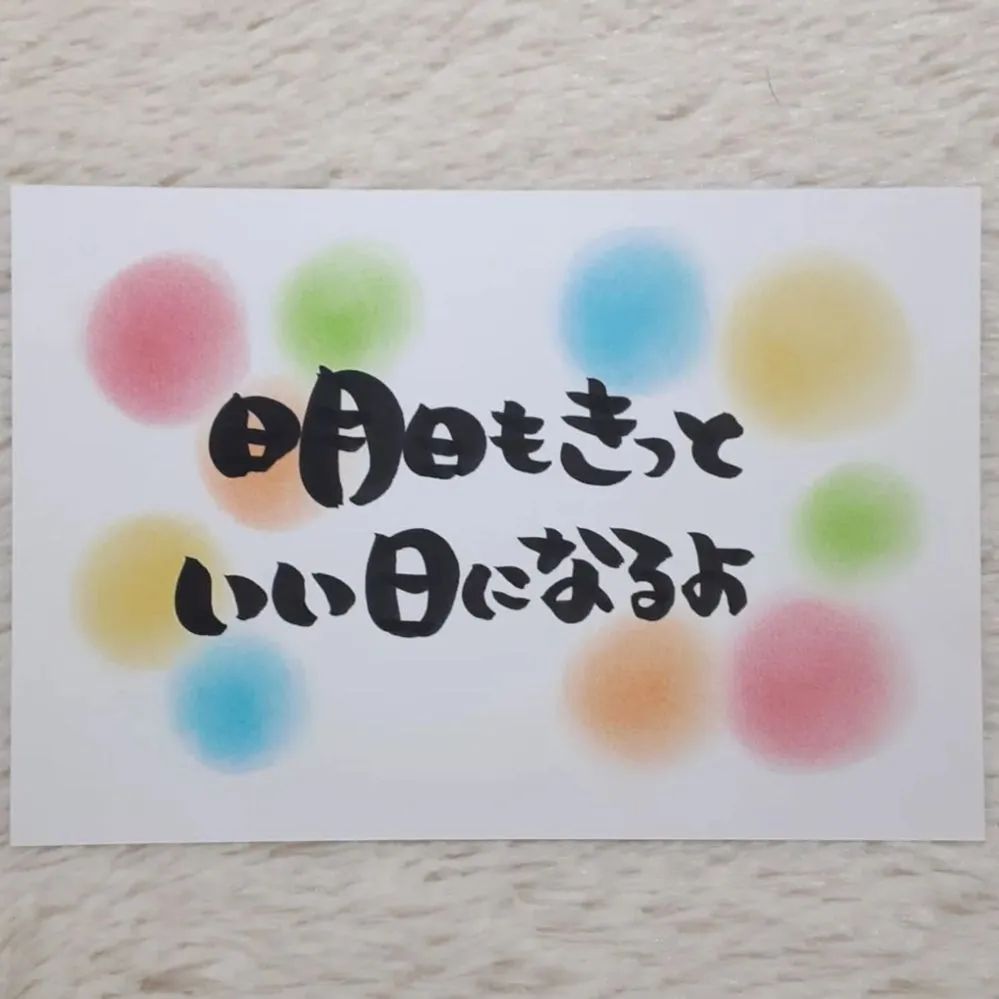 明日もきっと
いい日になるよ